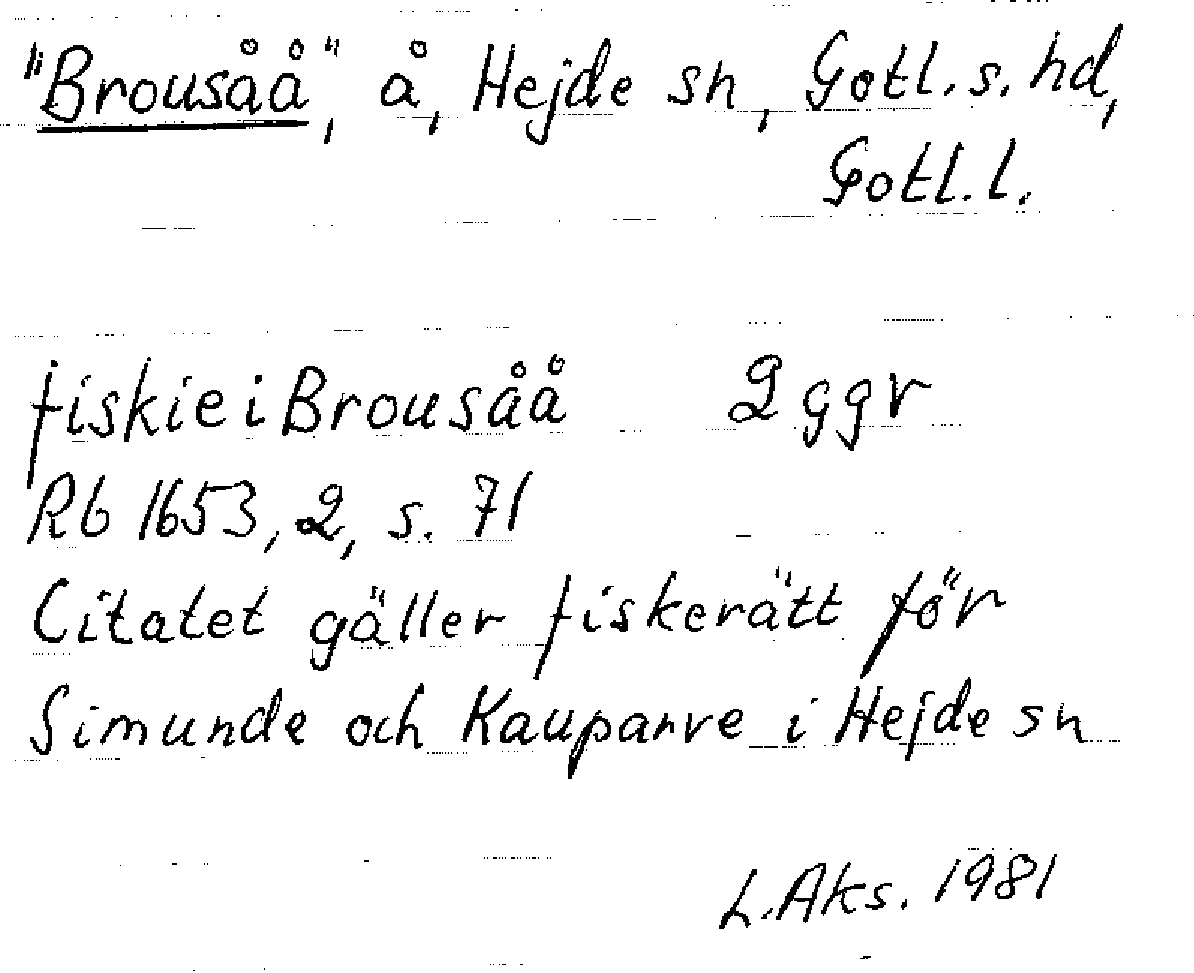 "Brousåå", å, Hejde sn, Gotl. s. hd,
Gotl. l.
fiskie i Brousåå 2 ggr
Rb 1653, 2, s. 71
Citatet gäller fiskerätt för
Simunde och Kauparve i Hejde sn
L. Aks. 1981